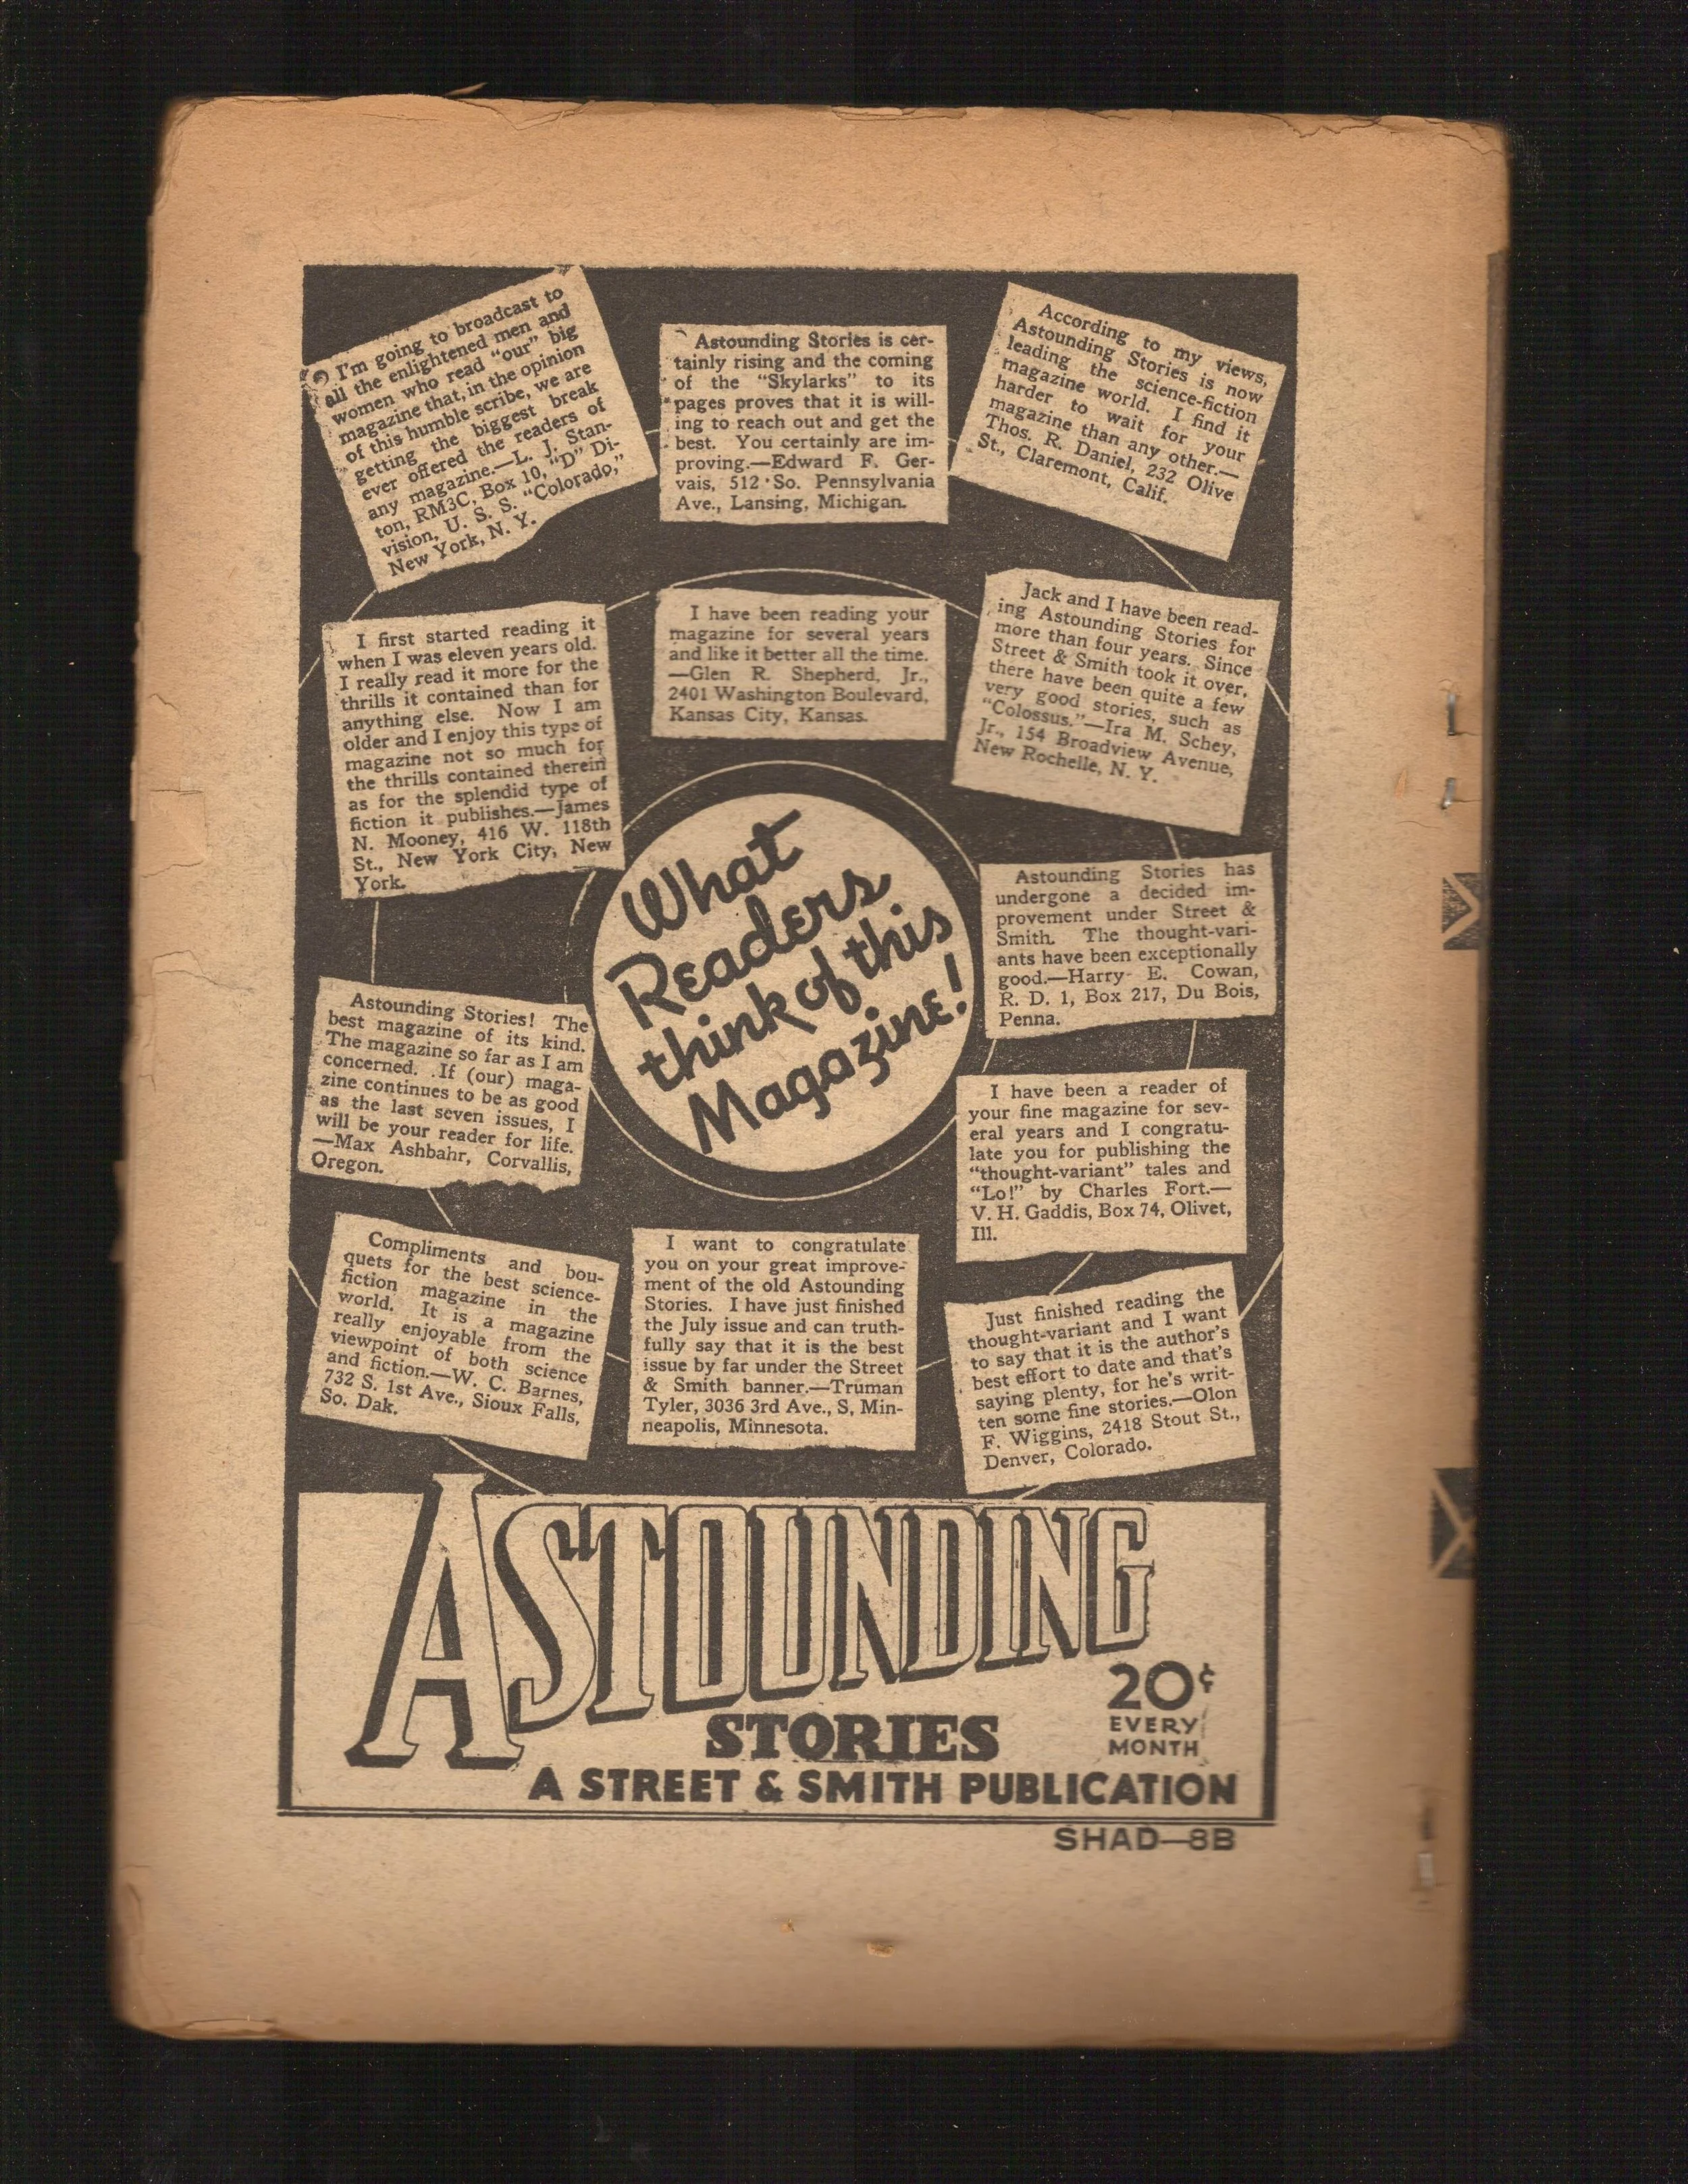 I'm going to broadcast to
all the enlightened men and
women who read "our" big
magazine that, in the opinion
of this humble scribe, we are
getting the biggest break
ever offered the readers of
any magazine.—L. J. Stan-
ton, RM3C, Box 10, "D" Di-
vision, U. S. S. "Colorado,"
New York, N. Y.
Astounding Stories is cer-
tainly rising and the coming
of the "Skylarks" to its
pages proves that it is will-
ing to reach out and get the
best. You certainly are im-
proving.—Edward F. Ger-
vais, 512 So. Pennsylvania
Ave., Lansing, Michigan.
According to my views,
Astounding Stories is now
leading the science-fiction
magazine world. I find it
harder to wait for your
magazine than any other.—
Thos. R. Daniel, 232 Olive
St., Claremont, Calif.
I first started reading it
when I was eleven years old.
I really read it more for the
thrills it contained than for
anything else. Now I am
older and I enjoy this type of
magazine not so much for
the thrills contained therein
as for the splendid type of
fiction it publishes.—James
N. Mooney, 416 W. 118th
St., New York City, New
York.
I have been reading your
magazine for several years
and like it better all the time.
—Glen R. Shepherd, Jr.,
2401 Washington Boulevard,
Kansas City, Kansas.
Jack and I have been read-
ing Astounding Stories for
more than four years. Since
Street & Smith took it over,
there have been quite a few
very good stories, such as
"Colossus."—Ira M. Schey,
Jr., 154 Broadview Avenue,
New Rochelle, N. Y.
What
Readers
think of this
Magazine!
Astounding Stories has
undergone a decided im-
provement under Street &
Smith. The thought-vari-
ants have been exceptionally
good.—Harry E. Cowan,
R. D. 1, Box 217, Du Bois,
Penna.
Astounding Stories! The
best magazine of its kind.
The magazine so far as I am
concerned. If (our) maga-
zine continues to be as good
as the last seven issues, I
will be your reader for life.
—Max Ashbahr, Corvallis,
Oregon.
I have been a reader of
your fine magazine for sev-
eral years and I congratu-
late you for publishing the
"thought-variant" tales and
"Lo!" by Charles Fort.—
V. H. Gaddis, Box 74, Olivet,
Ill.
Compliments and bou-
quets for the best science-
fiction magazine in the
world. It is a magazine
really enjoyable from the
viewpoint of both science
and fiction.—W. C. Barnes,
732 S. 1st Ave., Sioux Falls,
So. Dak.
I want to congratulate
you on your great improve-
ment of the old Astounding
Stories. I have just finished
the July issue and can truth-
fully say that it is the best
issue by far under the Street
& Smith banner.—Truman
Tyler, 3036 3rd Ave., S, Min-
neapolis, Minnesota.
Just finished reading the
thought-variant and I want
to say that it is the author's
best effort to date and that's
saying plenty, for he's writ-
ten some fine stories.—Olon
F. Wiggins, 2418 Stout St.,
Denver, Colorado.
ASTOUNDING
STORIES
20¢
EVERY
MONTH
A STREET & SMITH PUBLICATION
SHAD—8B